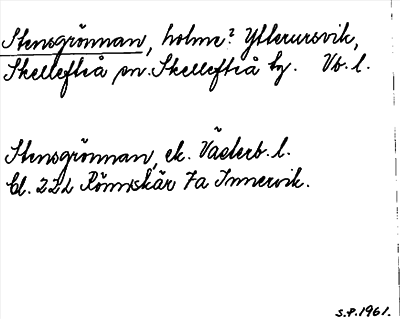 Stensgrönnan, holme? Ytterursvik,
Skellefteå sn. Skellefteå hg. Vb. l.
Stensgrönnan, ek. Västerb. l.
Bl. 222 Rönnskär 7a Innervik.
S.P. 1961.